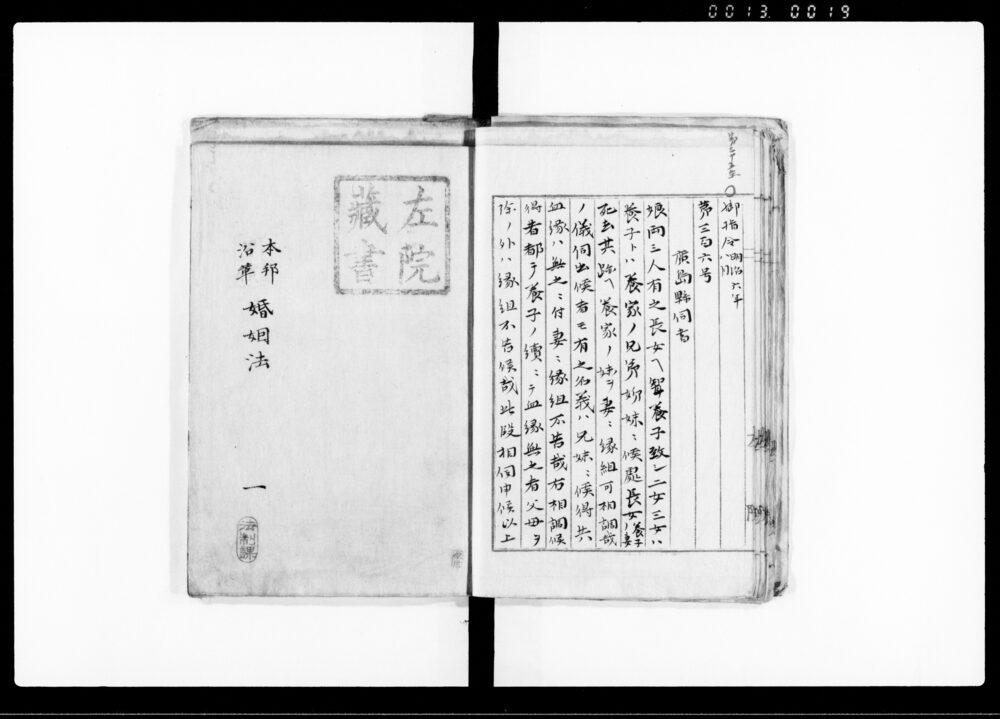 0013 0019
第三十五案
御指令 明治六年八月
第三百六号
廣島縣伺書
娘両三人有之長女ヘ聟養子致シ二女三女ハ
養子トハ養家ノ兄弟姉妹ニ候處長女養子ノ妻
死去其跡ヘ養家ノ妹ヲ妻ニ縁組可相調哉
ノ儀伺出候者モ有之名義ハ兄妹ニ候得共
血縁ハ無之ニ付妻ニ縁組不苦哉右相調候
得者都テ養子ノ續ニテ血縁無之者父母ヲ
除ノ外ハ縁組不苦候哉此段相伺申候以上
左院
藏書
本邦
沿革
婚姻法
一
法制課